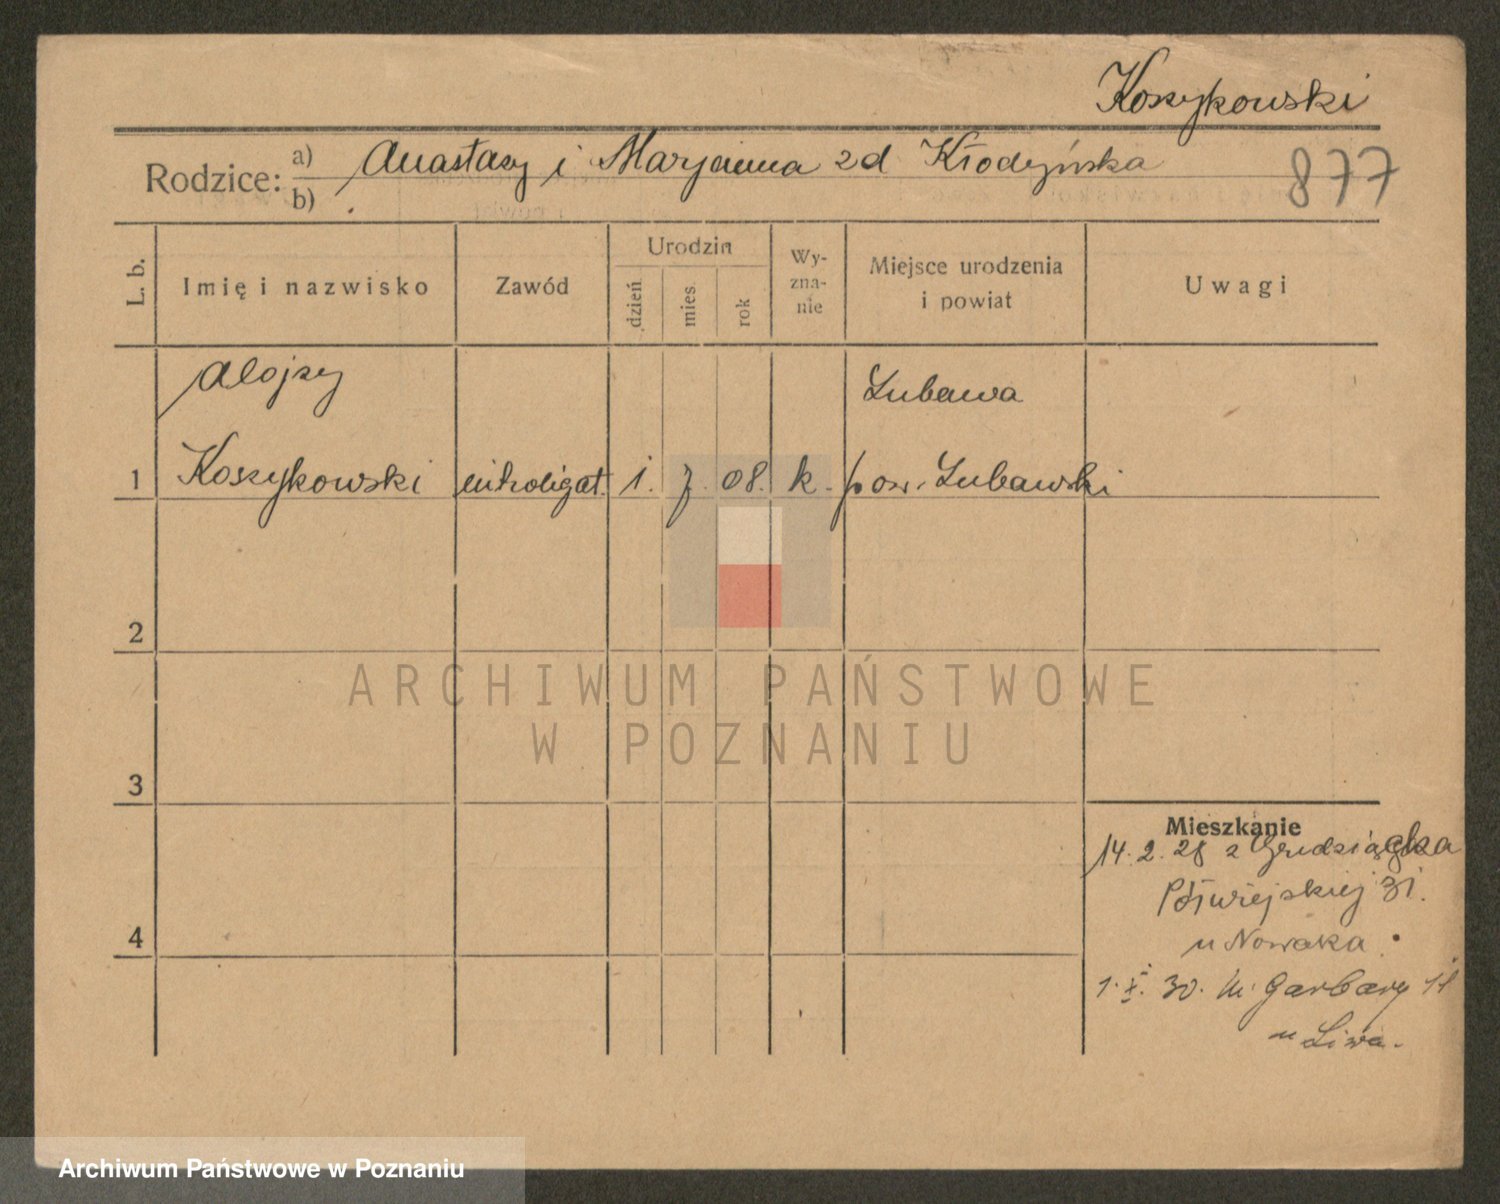 Koszykowski
Rodzice: a) Anastazy i Marjanna zd Kłodzyńska
b)
877
L. b.
Imię i nazwisko
Zawód
Urodzin
dzień
mies.
rok
Wy-
zna-
nie
Miejsce urodzenia
i powiat
Uwagi
Alojzy
Lubawa
1 Koszykowski introligat. 1. 7. 08. k. pow. Lubawski
2
ARCHIWUM PAŃSTWOWE
W POZNANIU
3
Mieszkanie
14. 2. 28 z Grudziądza
Półwiejskiej 31.
4
u Nowaka.
1. X. 30. W. Garbary 11
u Liwa.
Archiwum Państwowe w Poznaniu